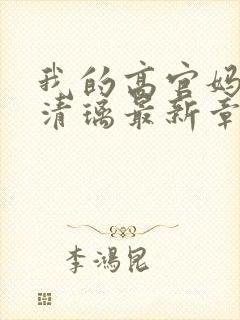 我的高官妈
清璃最新章
李鸿昆